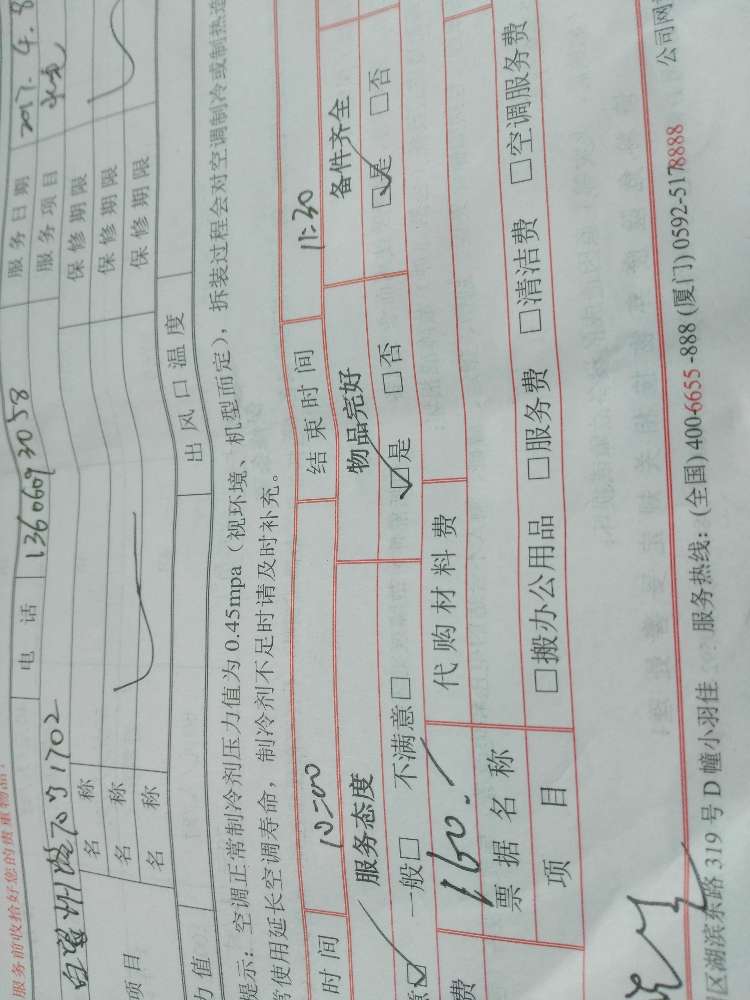 服务前收拾好您的贵重物品
服务日期 2017.4.8
电话 13606093058 服务项目
1702
名称 保修期限
名称 保修期限
名称 保修期限
项目
力值 出风口温度
提示：空调正常制冷剂压力值为0.45mpa（视环境、机型而定），拆装过程会对空调制冷或制热造
常使用延长空调寿命，制冷剂不足时请及时补充。
时间 10:00 结束时间 11:30
服务态度 物品完好 备件齐全
意☑ 一般□ 不满意□ ☑是 □否 ☑是 □否
费 160. 代购材料费
票据名称 □搬办公用品 □服务费 □清洁费 □空调服务费
项目
区湖滨东路319号D幢小羽佳 服务热线：(全国)400-6655-888 (厦门)0592-5178888 公司网